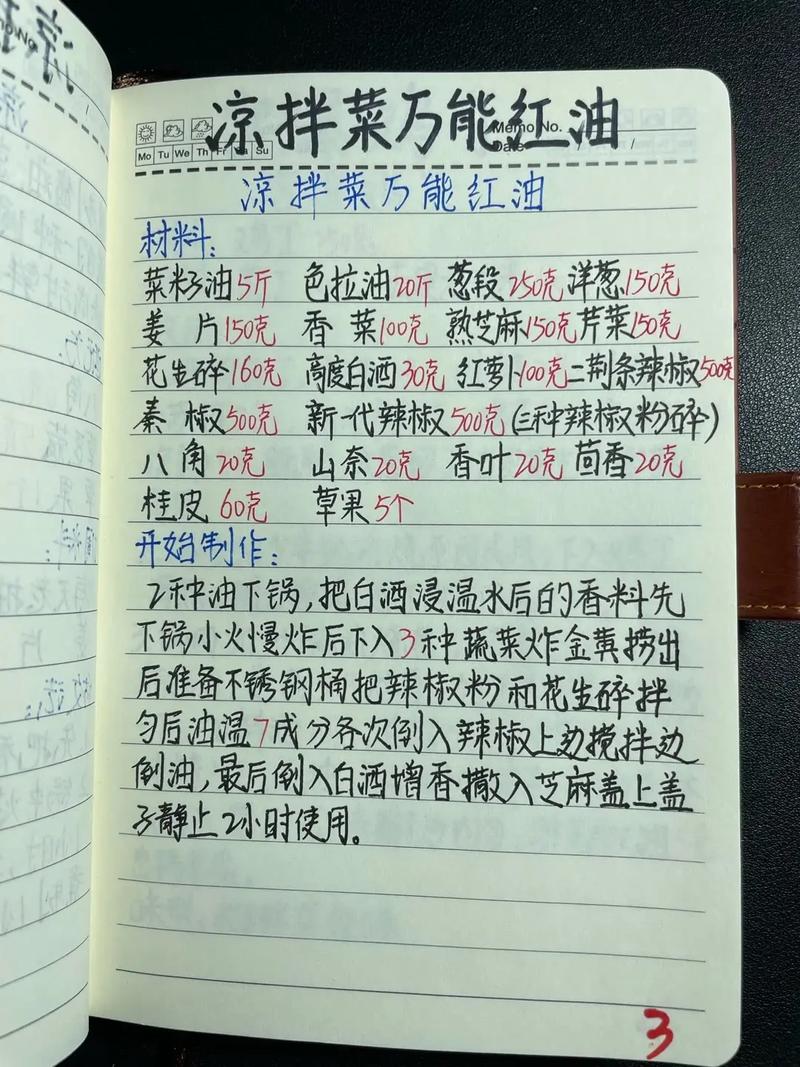 凉拌菜万能红油
Memo No.
Mo Tu We Th Fr Sa Su
Date / /
凉拌菜万能红油
材料:
菜籽油5斤 色拉油20斤 葱段250克 洋葱150克
姜片150克 香菜100克 熟芝麻150克 芹菜150克
花生碎160克 高度白酒30克 红萝卜100克 二荆条辣椒500克
秦椒500克 新一代辣椒500克 (三种辣椒粉碎)
八角20克 山奈20克 香叶20克 茴香20克
桂皮60克 草果5个
开始制作:
2种油下锅,把白酒浸温水后的香料先
下锅小火慢炸后下入3种蔬菜炸金黄捞出
后准备不锈钢桶把辣椒粉和花生碎拌
匀后油温7成分各次倒入辣椒上边搅拌边
倒油,最后倒入白酒增香撒入芝麻盖上盖
子静止2小时使用。
3